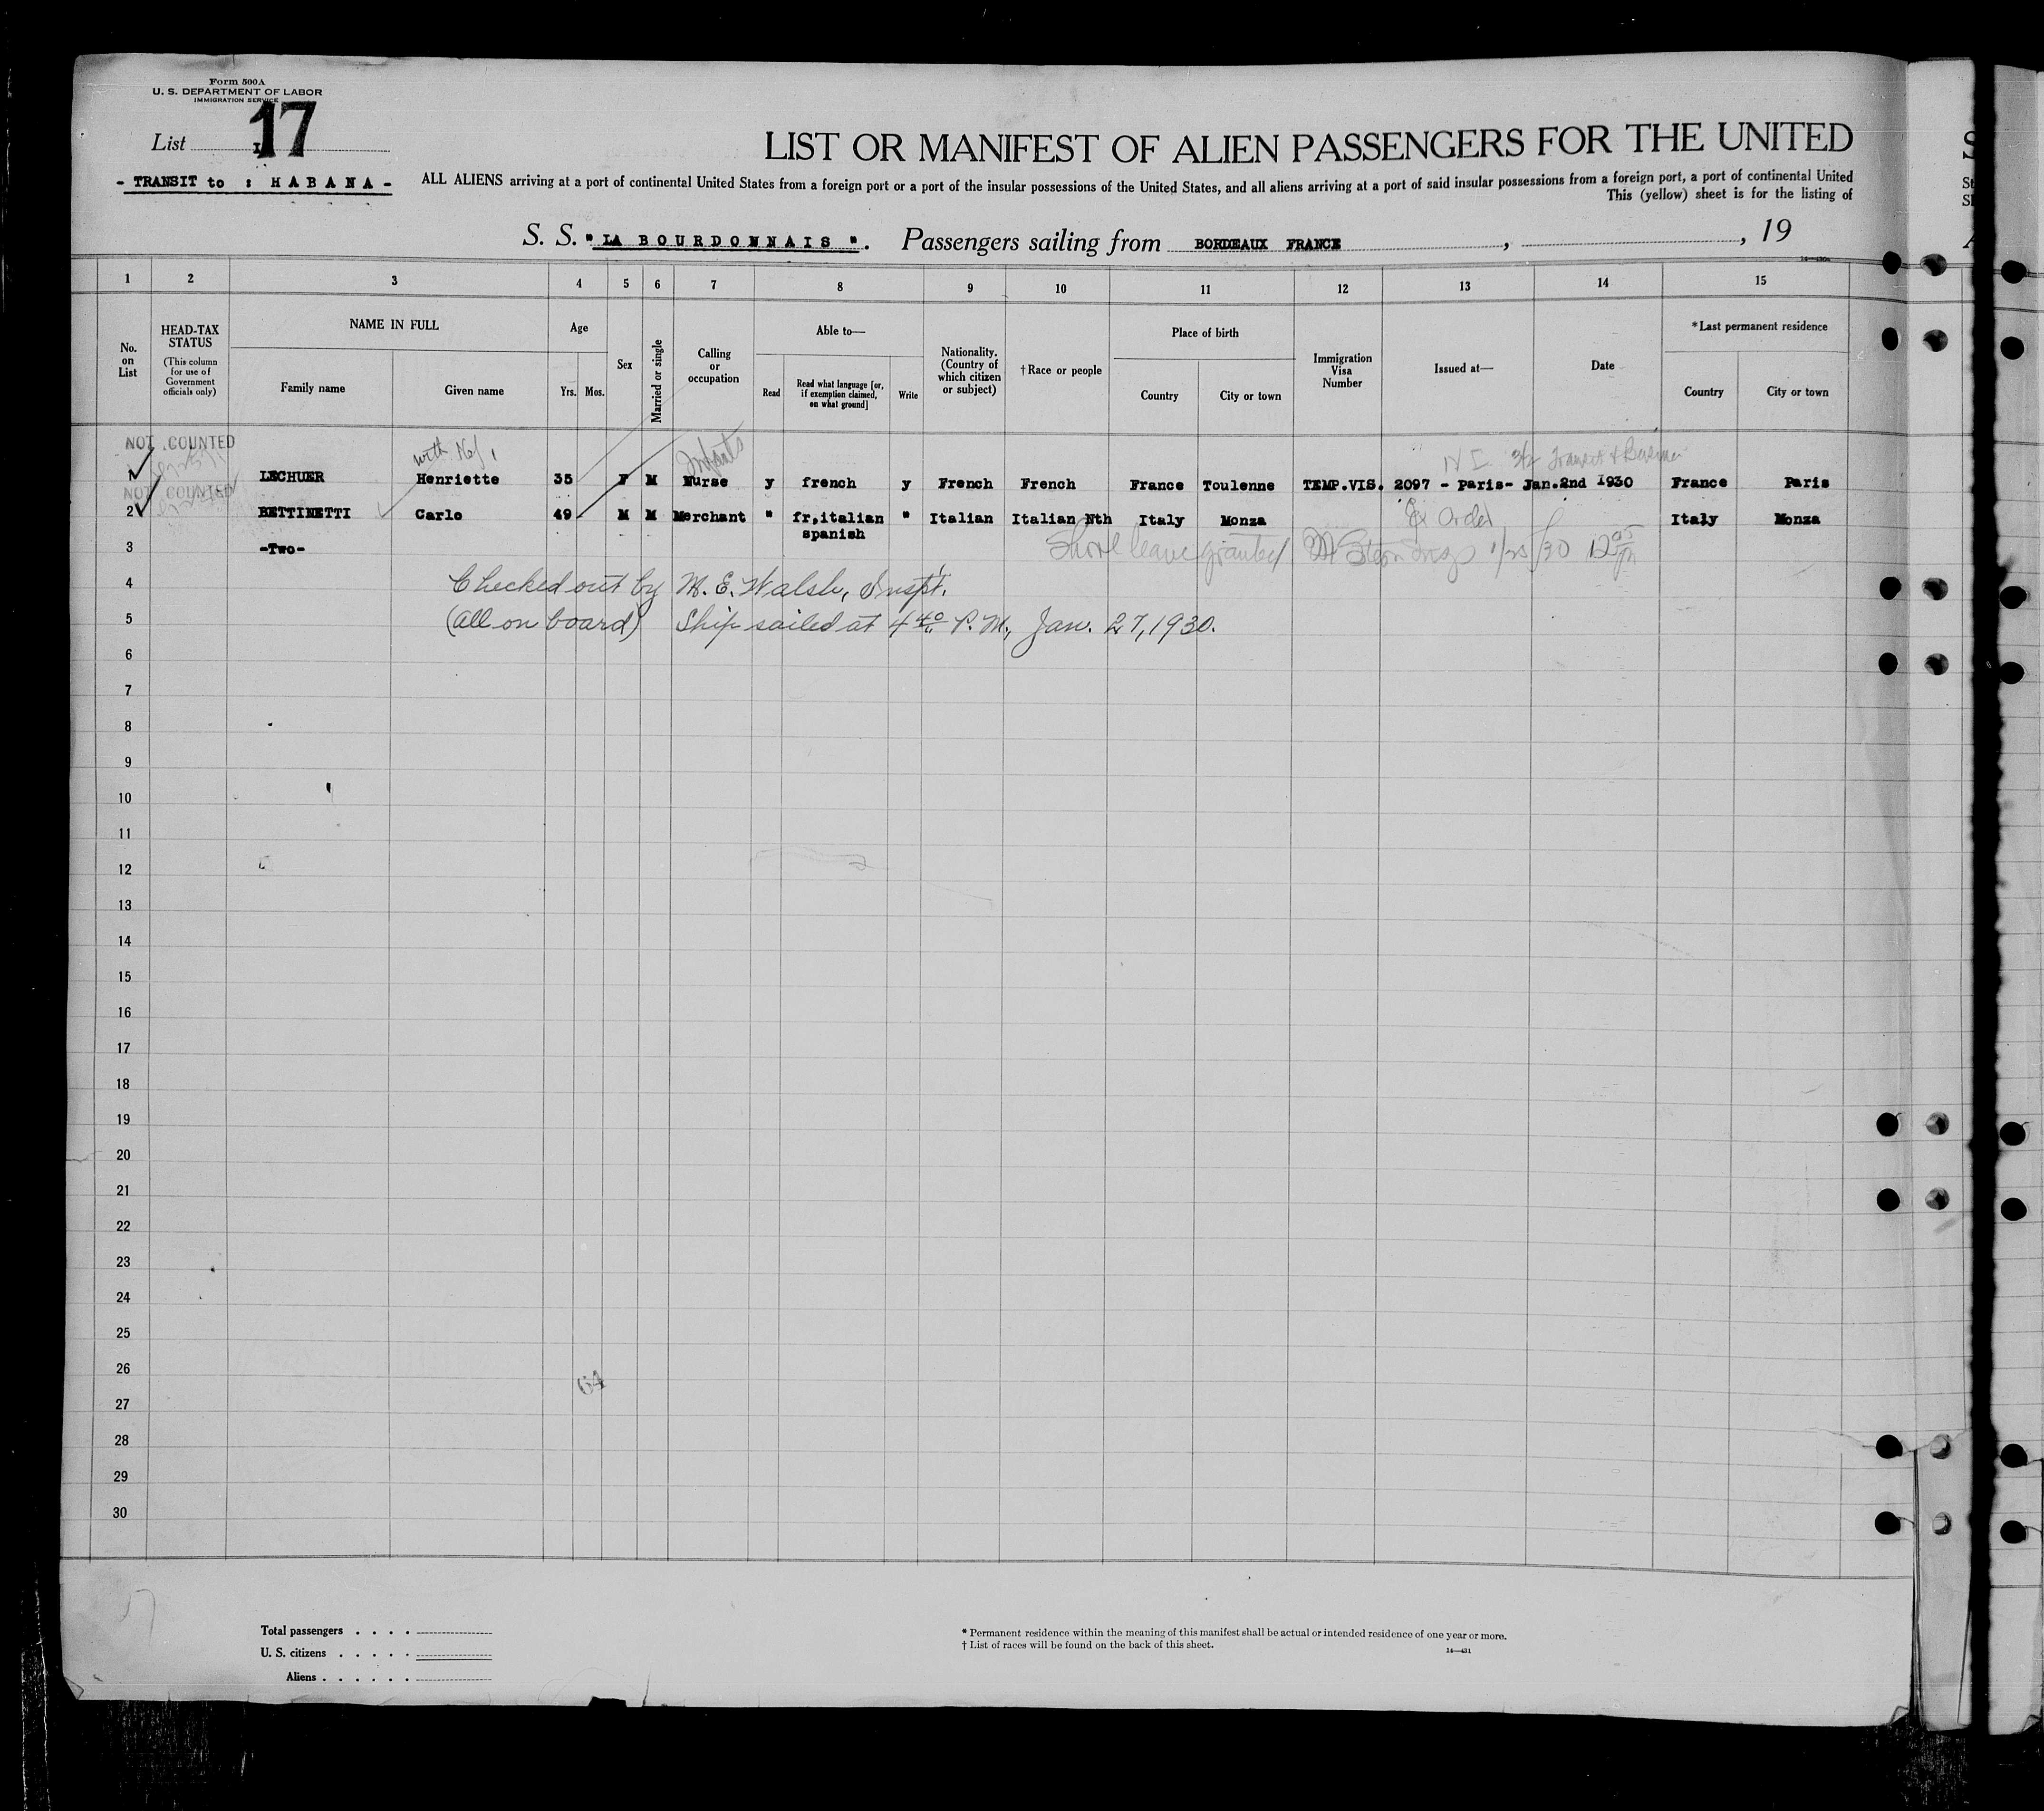 Form 500A
U. S. DEPARTMENT OF LABOR
IMMIGRATION SERVICE
List 17
LIST OR MANIFEST OF ALIEN PASSENGERS FOR THE UNITED
- TRANSIT to : H A B A N A -
ALL ALIENS arriving at a port of continental United States from a foreign port or a port of the insular possessions of the United States, and all aliens arriving at a port of said insular possessions from a foreign port, a port of continental United
This (yellow) sheet is for the listing of
S. S. " LA BOURDONNAIS ". Passengers sailing from BORDEAUX FRANCE , , 19
1 2 3 4 5 6 7 8 9 10 11 12 13 14 15
No. on List
HEAD-TAX STATUS
(This column for use of Government officials only)
NAME IN FULL
Family name
Given name
Age
Yrs. Mos.
Sex
Married or single
Calling or occupation
Able to—
Read
Read what language [or, if exemption claimed, on what ground]
Write
Nationality. (Country of which citizen or subject)
†Race or people
Place of birth
Country
City or town
Immigration Visa Number
Issued at—
Date
*Last permanent residence
Country
City or town
NOT COUNTED
with
Infants
1 LECHUER Henriette 35 F M Nurse y french y French French France Toulenne TEMP.VIS. 2097 - Paris- Jan.2nd 1930 France Paris
NOT COUNTED
2 BETTINETTI Carlo 49 M M Merchant " fr,italian " Italian Italian Nth Italy Monza Italy Monza
spanish
3 -Two-
Shore leave granted
4 Checked out by M. E. Walsh, Inspt.
5 (All on board) Ship sailed at 4 40 P. M., Jan. 27, 1930.
6
7
8
9
10
11
12
13
14
15
16
17
18
19
20
21
22
23
24
25
26
64
27
28
29
30
17
Total passengers . . . .
U. S. citizens . . . . .
Aliens . . . . . .
* Permanent residence within the meaning of this manifest shall be actual or intended residence of one year or more.
† List of races will be found on the back of this sheet.
14—431